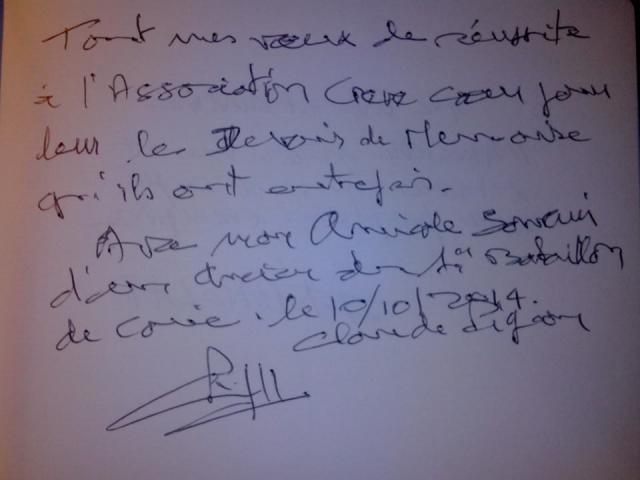 Tout mes vœux de réussite
à l'Association Creve cœur pour
leur le Devois de Memoire
qu'ils ont entrepris.
Avec mon Amicale Souvenir
d'un Ancien du 1er Bataillon
de Corée. le 10/10/2014.
Claude